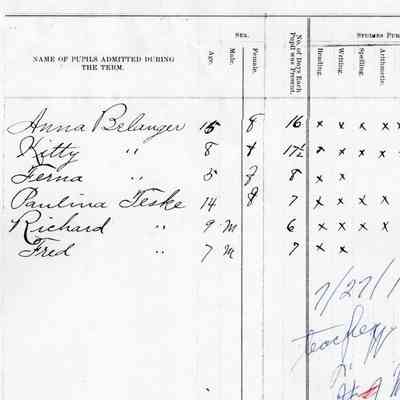 NAME OF PUPILS ADMITTED DURING THE TERM. Age. SEX. Male. Female. No. of Days Each Pupil was Present. STUDIES PUR Reading. Writing. Spelling. Arithmetic.
Anna Belanger 15 F 16 x x x x x
Kitty " 8 F 17½ x x x x x
Ferna " 5 F 8 x x
Paulina Teske 14 F 7 x x x x
Richard " 9 M 6 x x x x
Fred " 7 M 7 x x
7/27/1